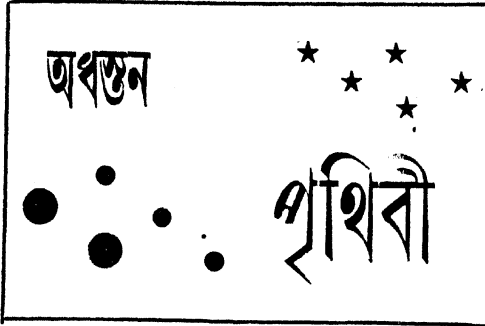 অধস্তন
পৃথিবী